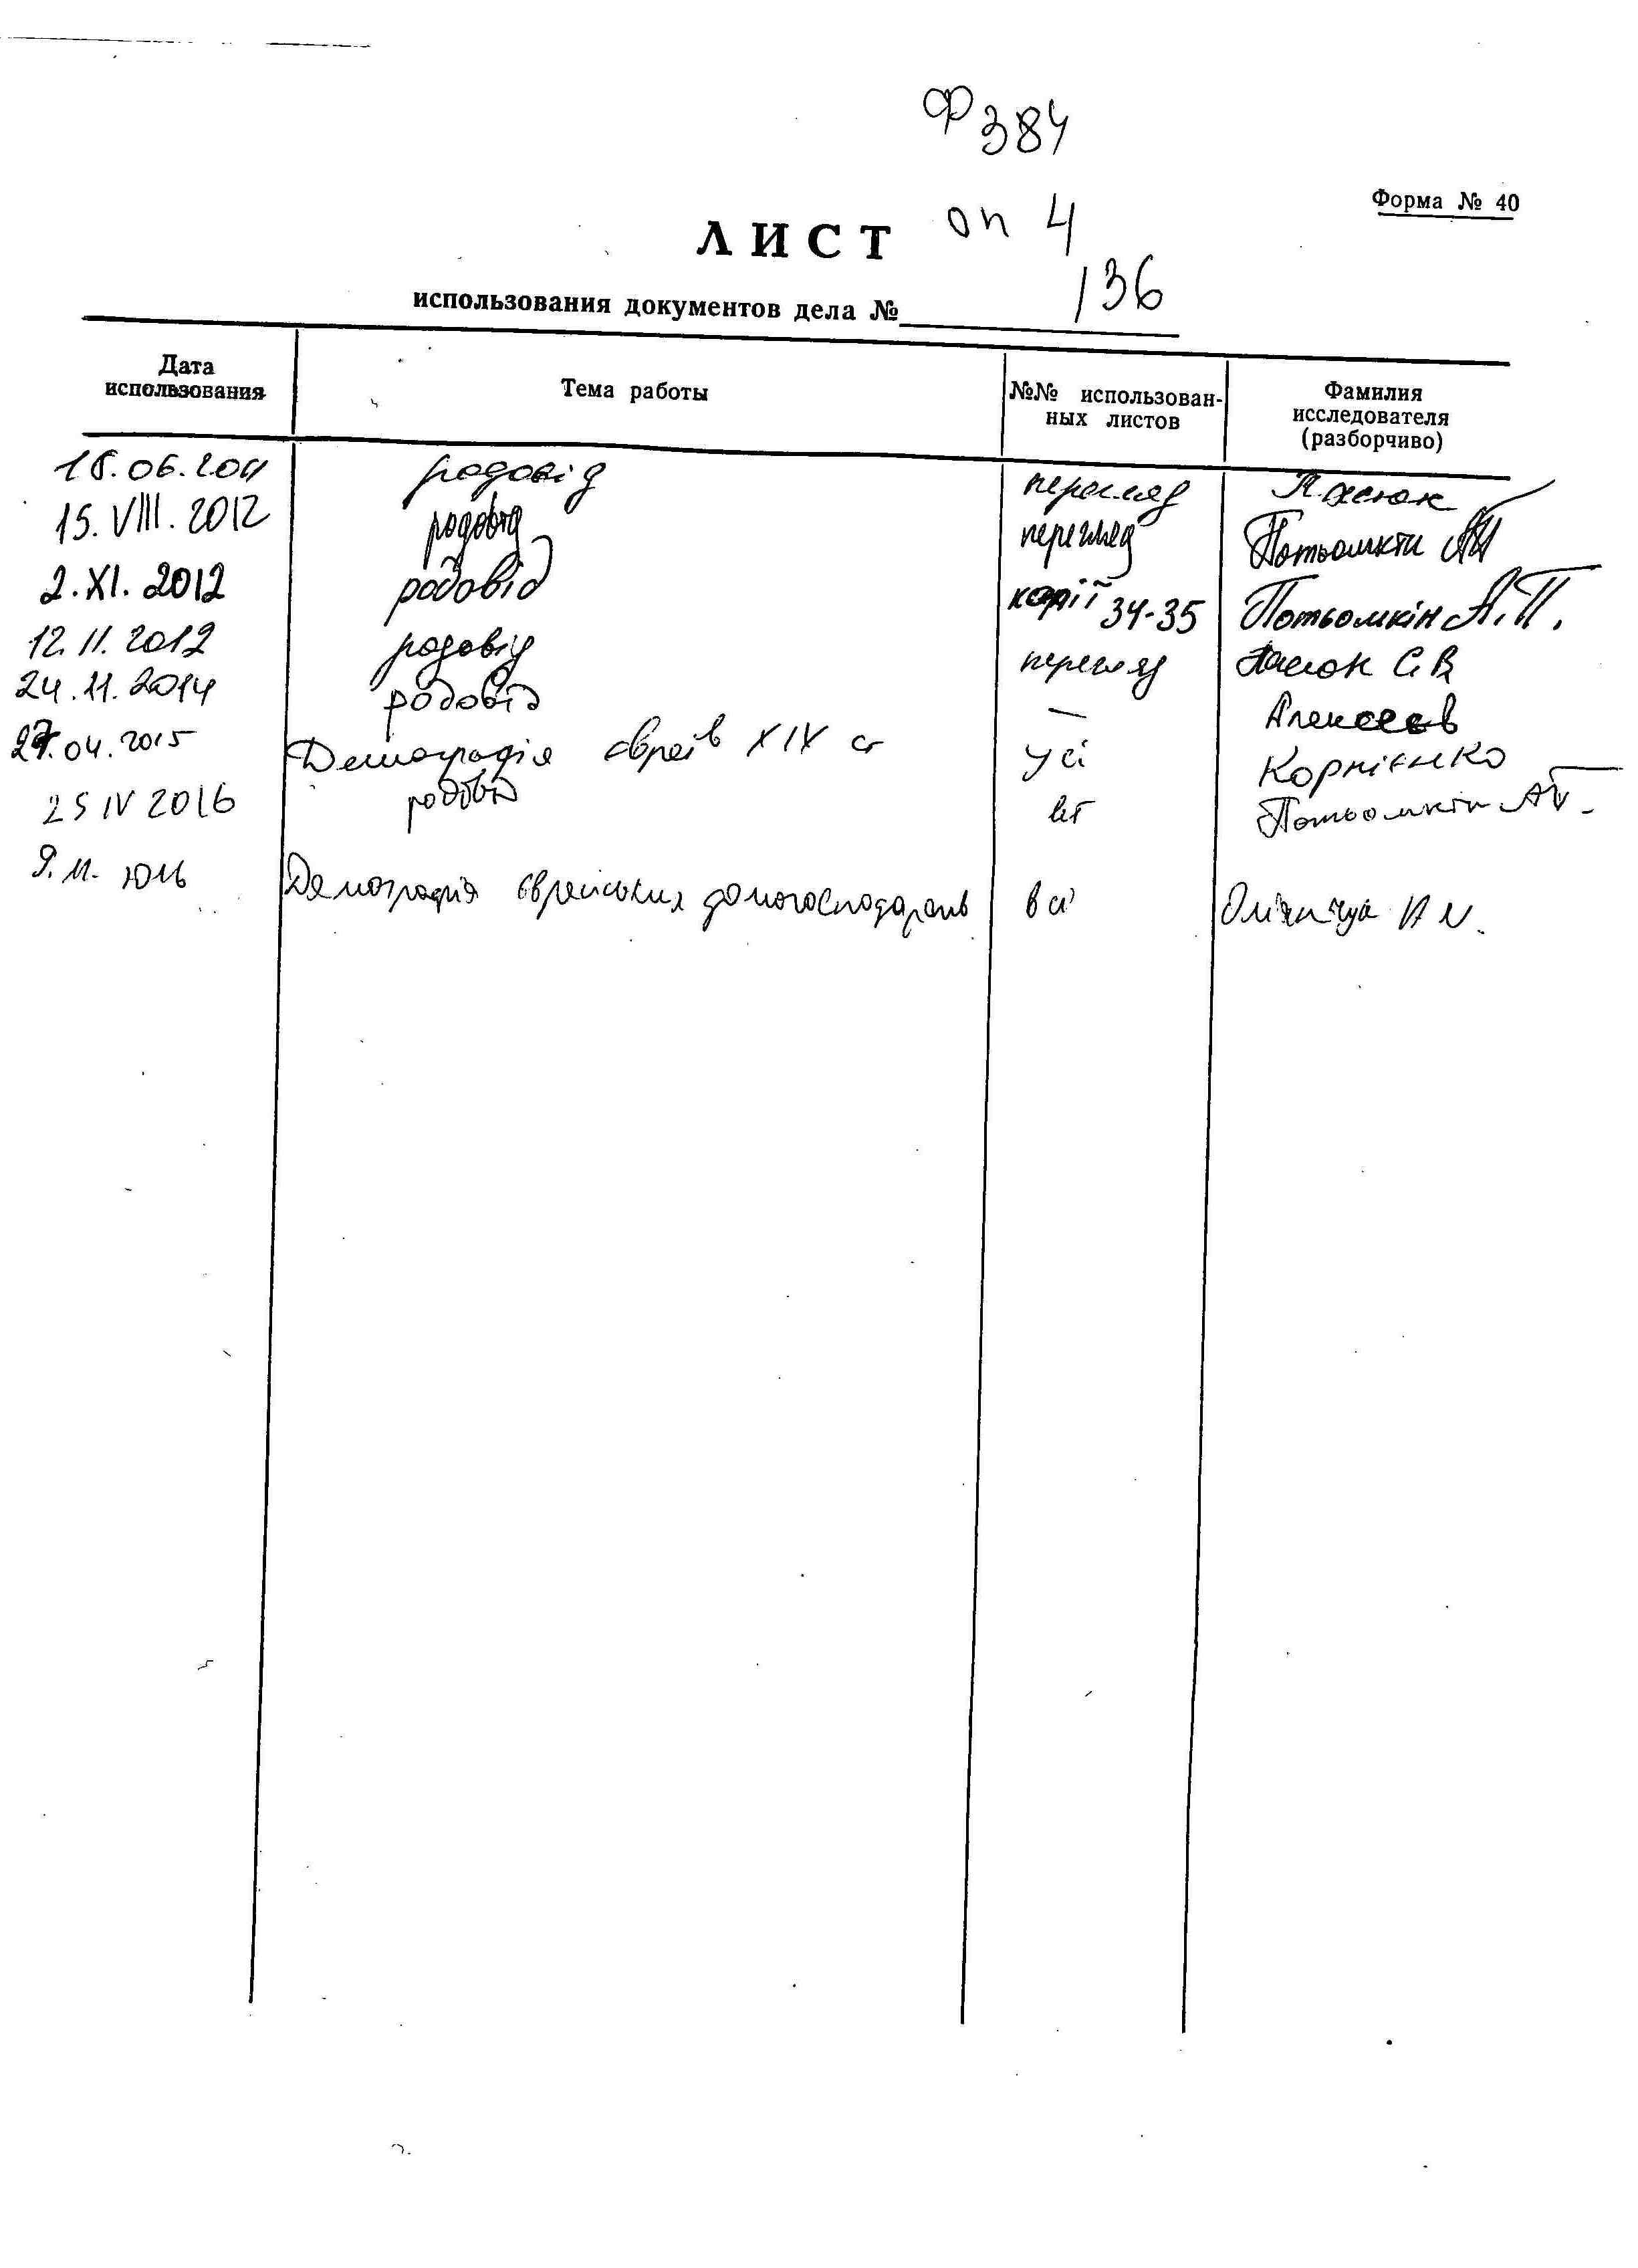 Ф 384
Форма № 40
ЛИСТ оп 4
использования документов дела № 136
Дата использования
Тема работы
№№ использован-
ных листов
Фамилия
исследователя
(разборчиво)
18.06.2011 родовід перегляд
15. VIII. 2012 родовід перегляд Потьомкін АП
2. XI. 2012 родовід копії 34-35 Потьомкін А.П.
12.11.2012 родовід перегляд С В
24.11.2014 родовід — Алексеев
27.04.2015 Демографія євреїв XIX ст усі Корнієнко
25 IV 2016 родовід всі Потьомкін АП.
9.11. 2016 Демографія єврейських домогосподарств всі